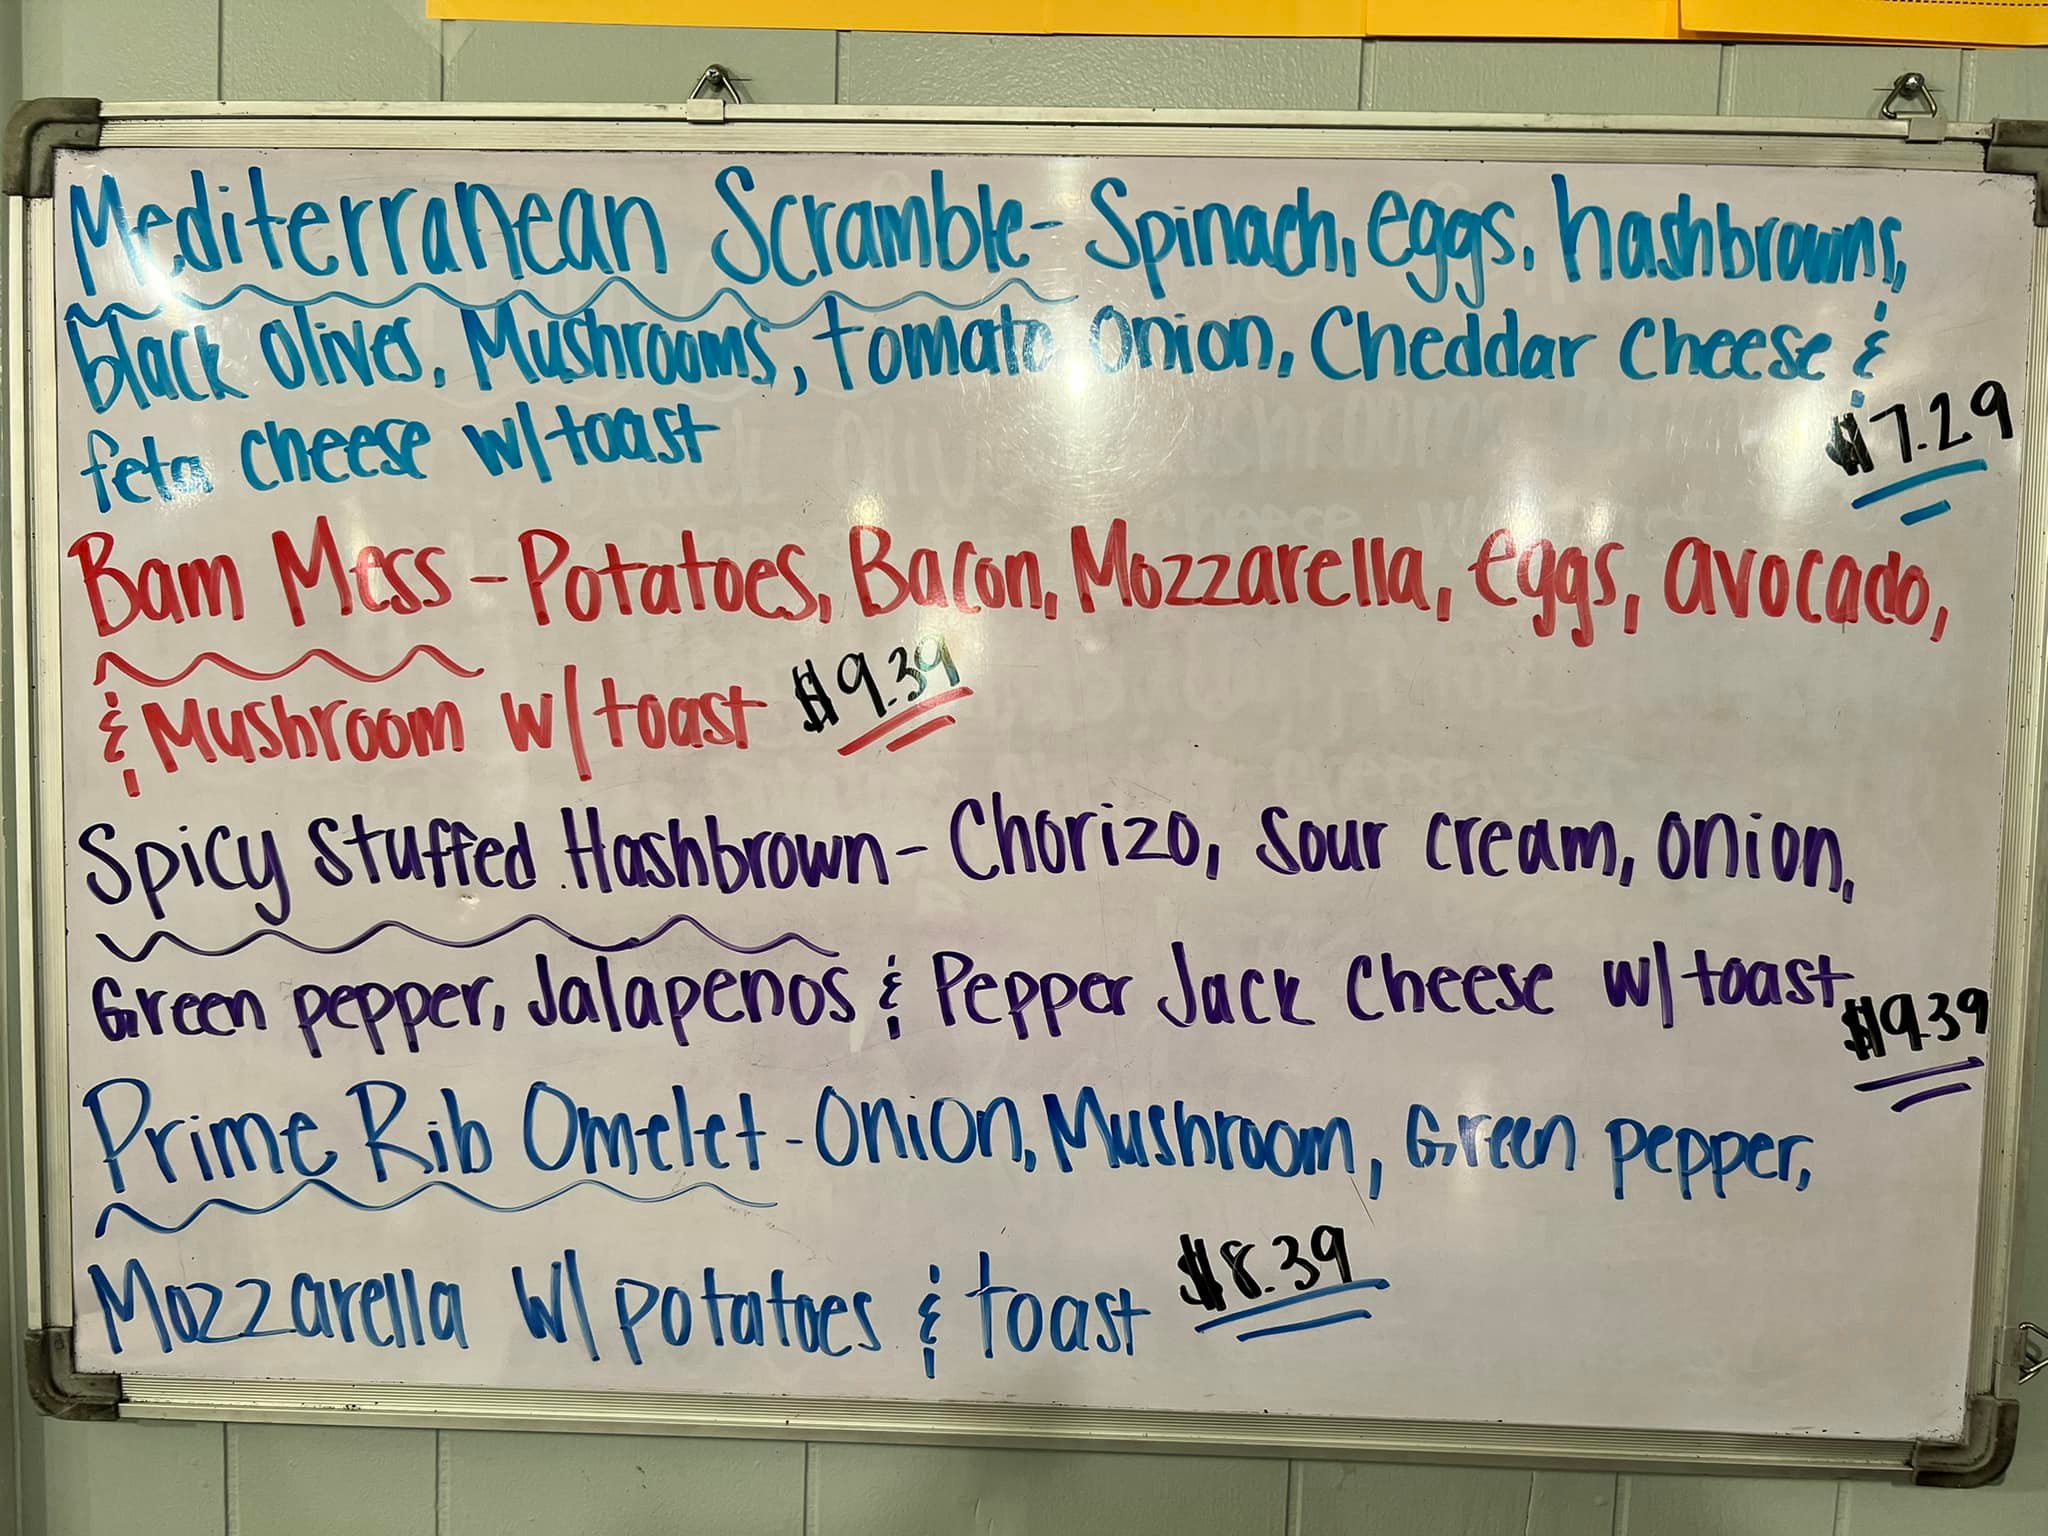 Mediterranean Scramble- Spinach, eggs, hashbrowns,
black olives, Mushrooms, tomato onion, Cheddar cheese &
feta cheese w/toast
$7.29
Bam Mess - Potatoes, Bacon, Mozzarella, eggs, avocado,
& Mushroom w/toast $9.39
Spicy Stuffed Hashbrown - Chorizo, Sour cream, onion,
Green pepper, Jalapenos & Pepper Jack Cheese w/toast
$9.39
Prime Rib Omelet - Onion, Mushroom, Green pepper,
Mozzarella w/potatoes & toast $8.39